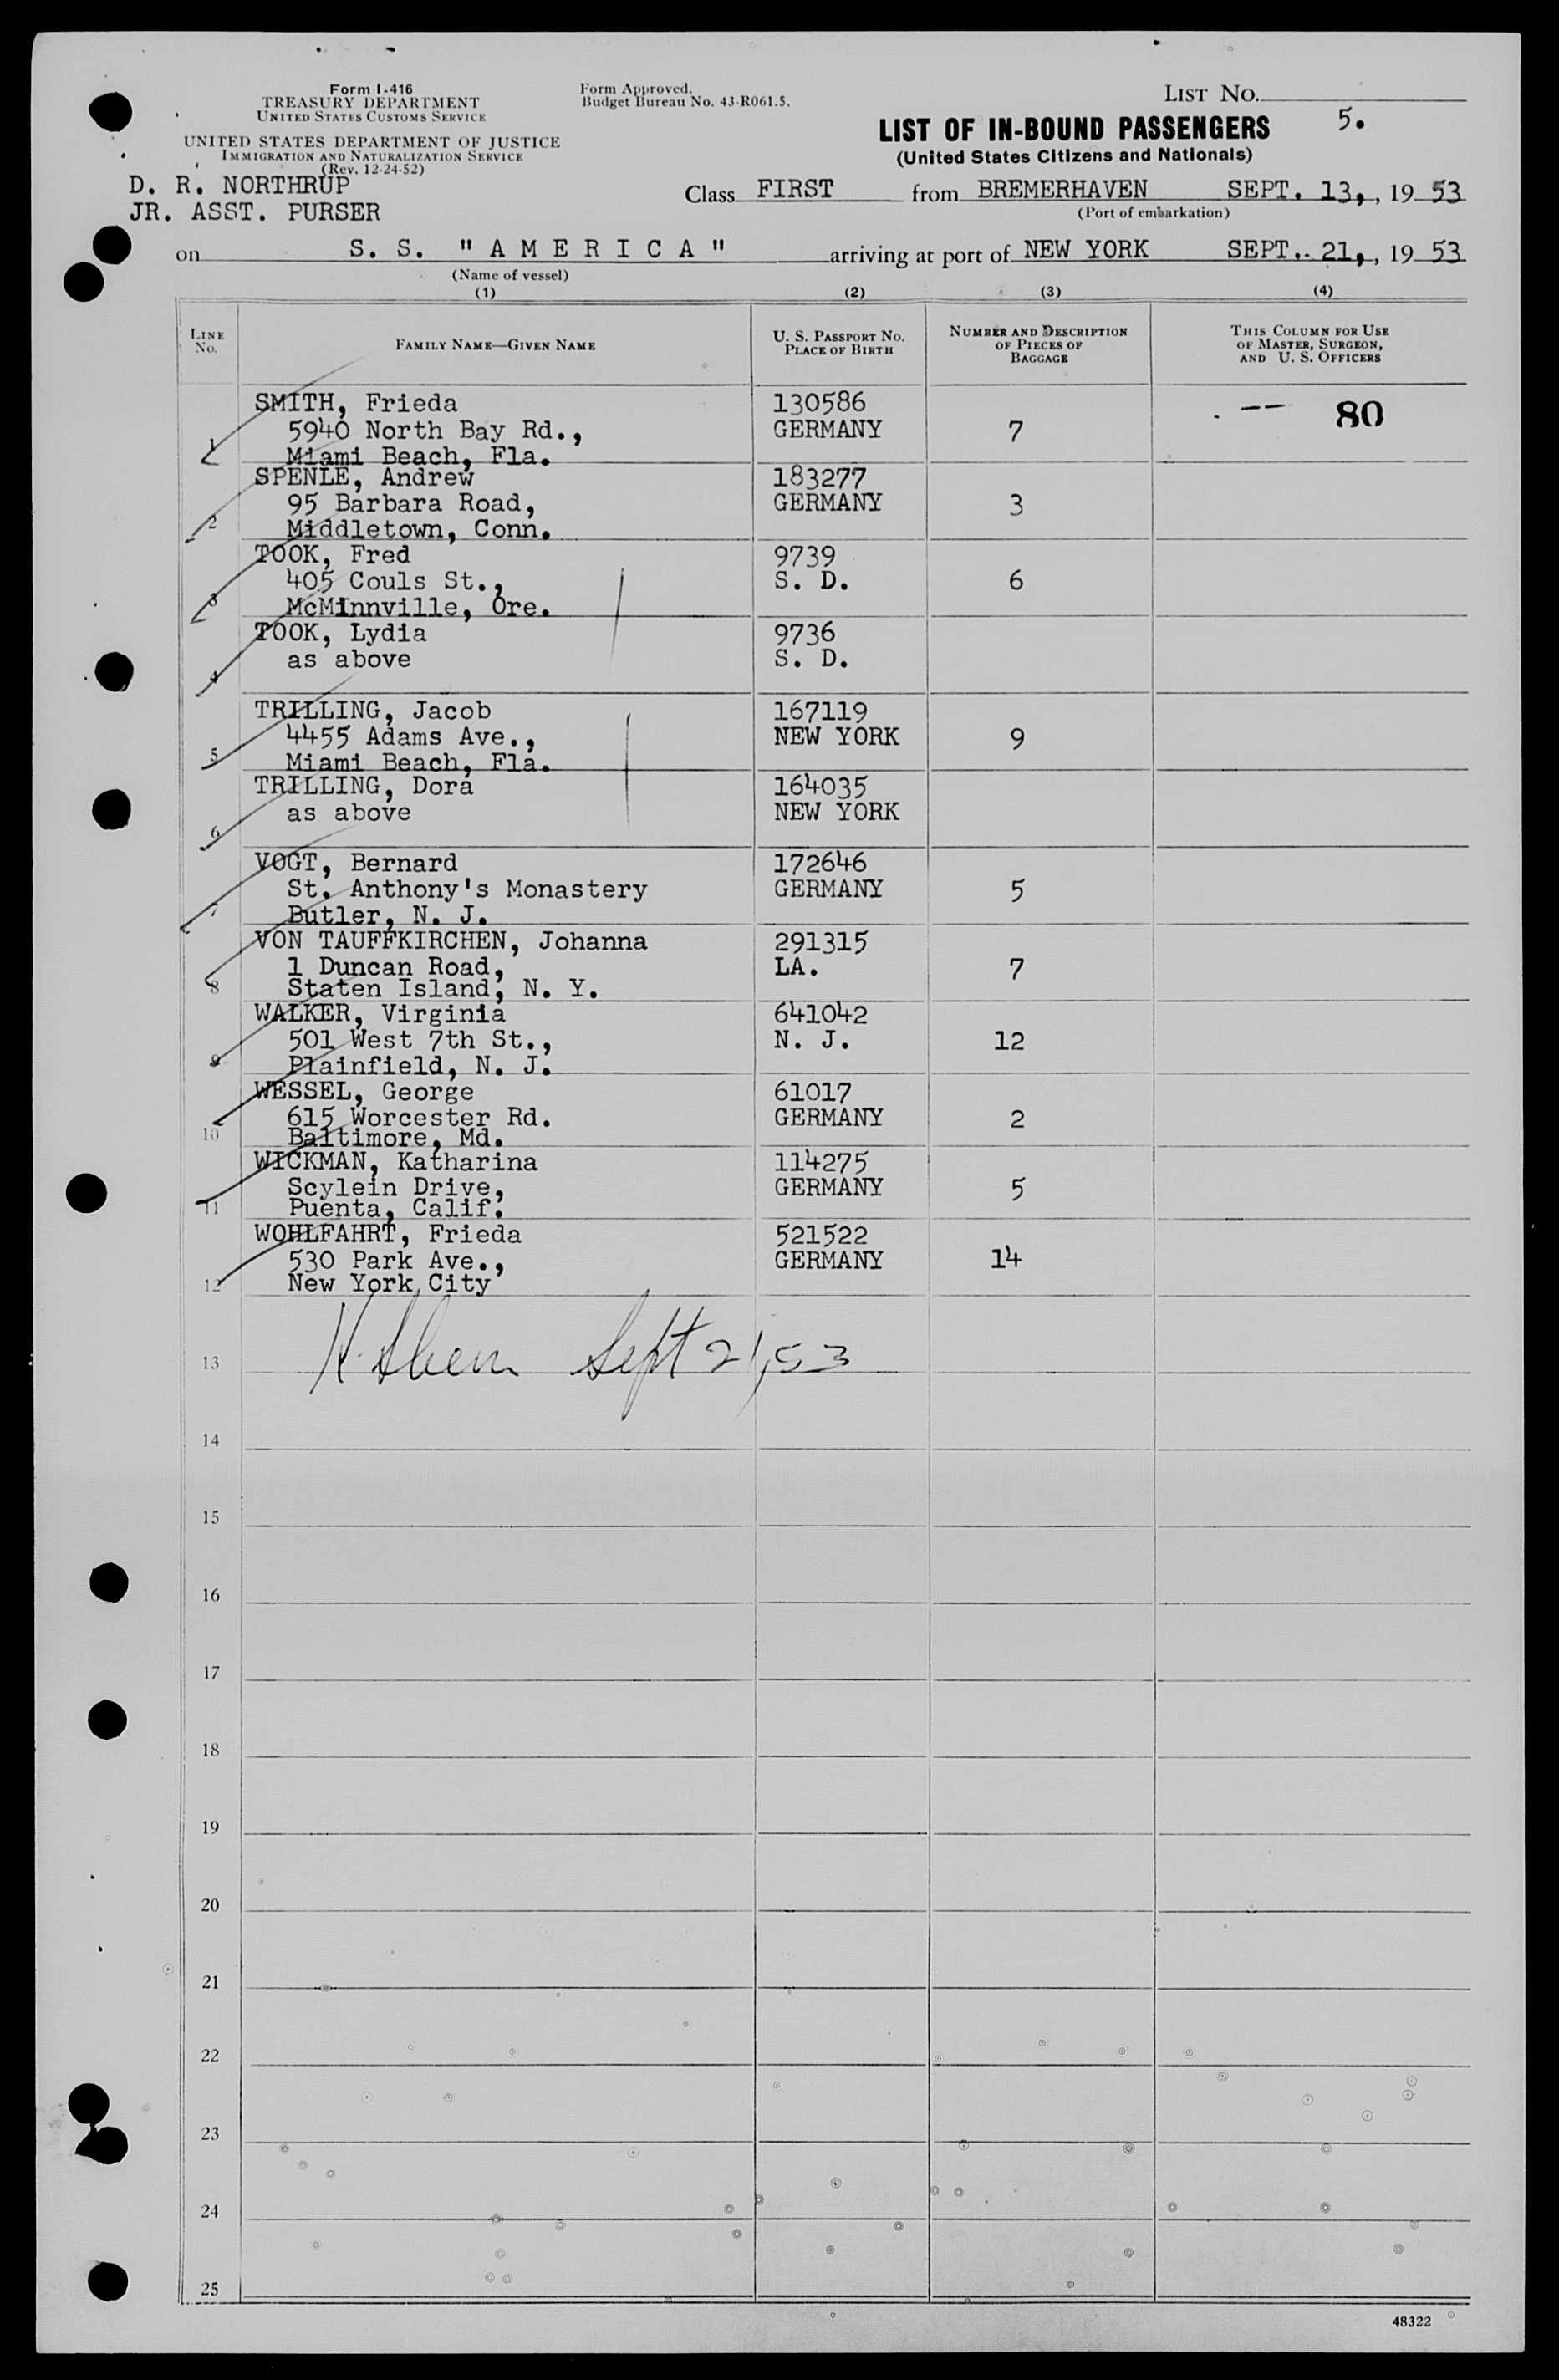 Form I-416
TREASURY DEPARTMENT
UNITED STATES CUSTOMS SERVICE
UNITED STATES DEPARTMENT OF JUSTICE
IMMIGRATION AND NATURALIZATION SERVICE
(Rev. 12-24-52)
Form Approved.
Budget Bureau No. 43-R061.5.
LIST NO.
5.
LIST OF IN-BOUND PASSENGERS
(United States Citizens and Nationals)
D. R. NORTHRUP
JR. ASST. PURSER
Class FIRST from BREMERHAVEN SEPT. 13,, 19 53
(Port of embarkation)
on S. S. "A M E R I C A" arriving at port of NEW YORK SEPT.. 21,, 19 53
(Name of vessel)
(1) (2) (3) (4)
LINE No.
FAMILY NAME—GIVEN NAME
U. S. PASSPORT NO.
PLACE OF BIRTH
NUMBER AND DESCRIPTION
OF PIECES OF
BAGGAGE
THIS COLUMN FOR USE
OF MASTER, SURGEON,
AND U. S. OFFICERS
SMITH, Frieda 130586 -- 80
1 5940 North Bay Rd., GERMANY 7
Miami Beach, Fla.
SPENLE, Andrew 183277
2 95 Barbara Road, GERMANY 3
Middletown, Conn.
TOOK, Fred 9739
3 405 Couls St., S. D. 6
McMInnville, Ore.
TOOK, Lydia 9736
4 as above S. D.
TRILLING, Jacob 167119
5 4455 Adams Ave., NEW YORK 9
Miami Beach, Fla.
TRILLING, Dora 164035
6 as above NEW YORK
VOGT, Bernard 172646
7 St. Anthony's Monastery GERMANY 5
Butler, N. J.
VON TAUFFKIRCHEN, Johanna 291315
8 1 Duncan Road, LA. 7
Staten Island, N. Y.
WALKER, Virginia 641042
9 501 West 7th St., N. J. 12
Plainfield, N. J.
WESSEL, George 61017
10 615 Worcester Rd. GERMANY 2
Baltimore, Md.
WICKMAN, Katharina 114275
11 Scylein Drive, GERMANY 5
Puenta, Calif.
WOHLFAHRT, Frieda 521522
12 530 Park Ave., GERMANY 14
New York City
13 Sept 21, 53
14
15
16
17
18
19
20
21
22
23
24
25
48322